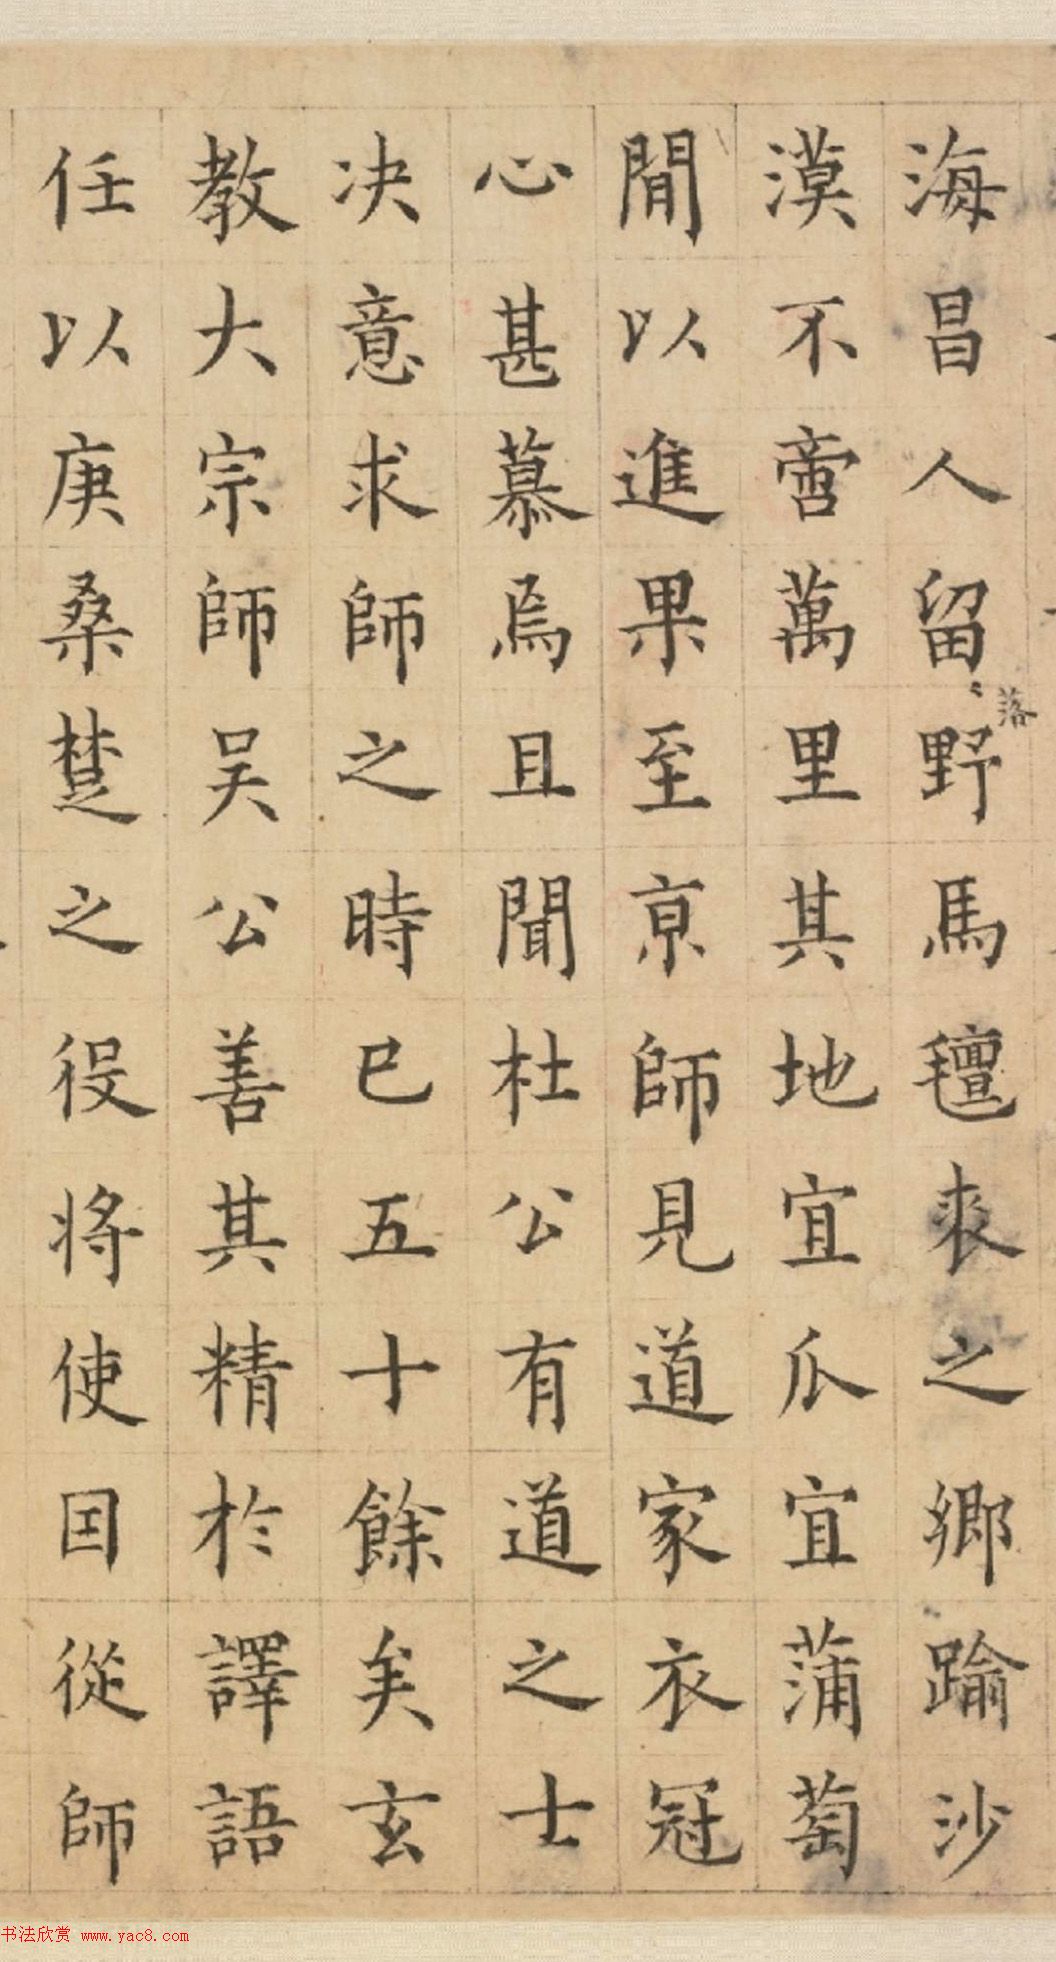 海昌人留野馬氊裘之鄉踰沙
落
漠不啻萬里其地宜瓜宜蒲萄
閒以進果至京師見道家衣冠
心甚慕焉且聞杜公有道之士
决意求師之時已五十餘矣玄
教大宗師吴公善其精於譯語
任以庚桑楚之役将使囯從師
书法欣赏 www.yac8.com